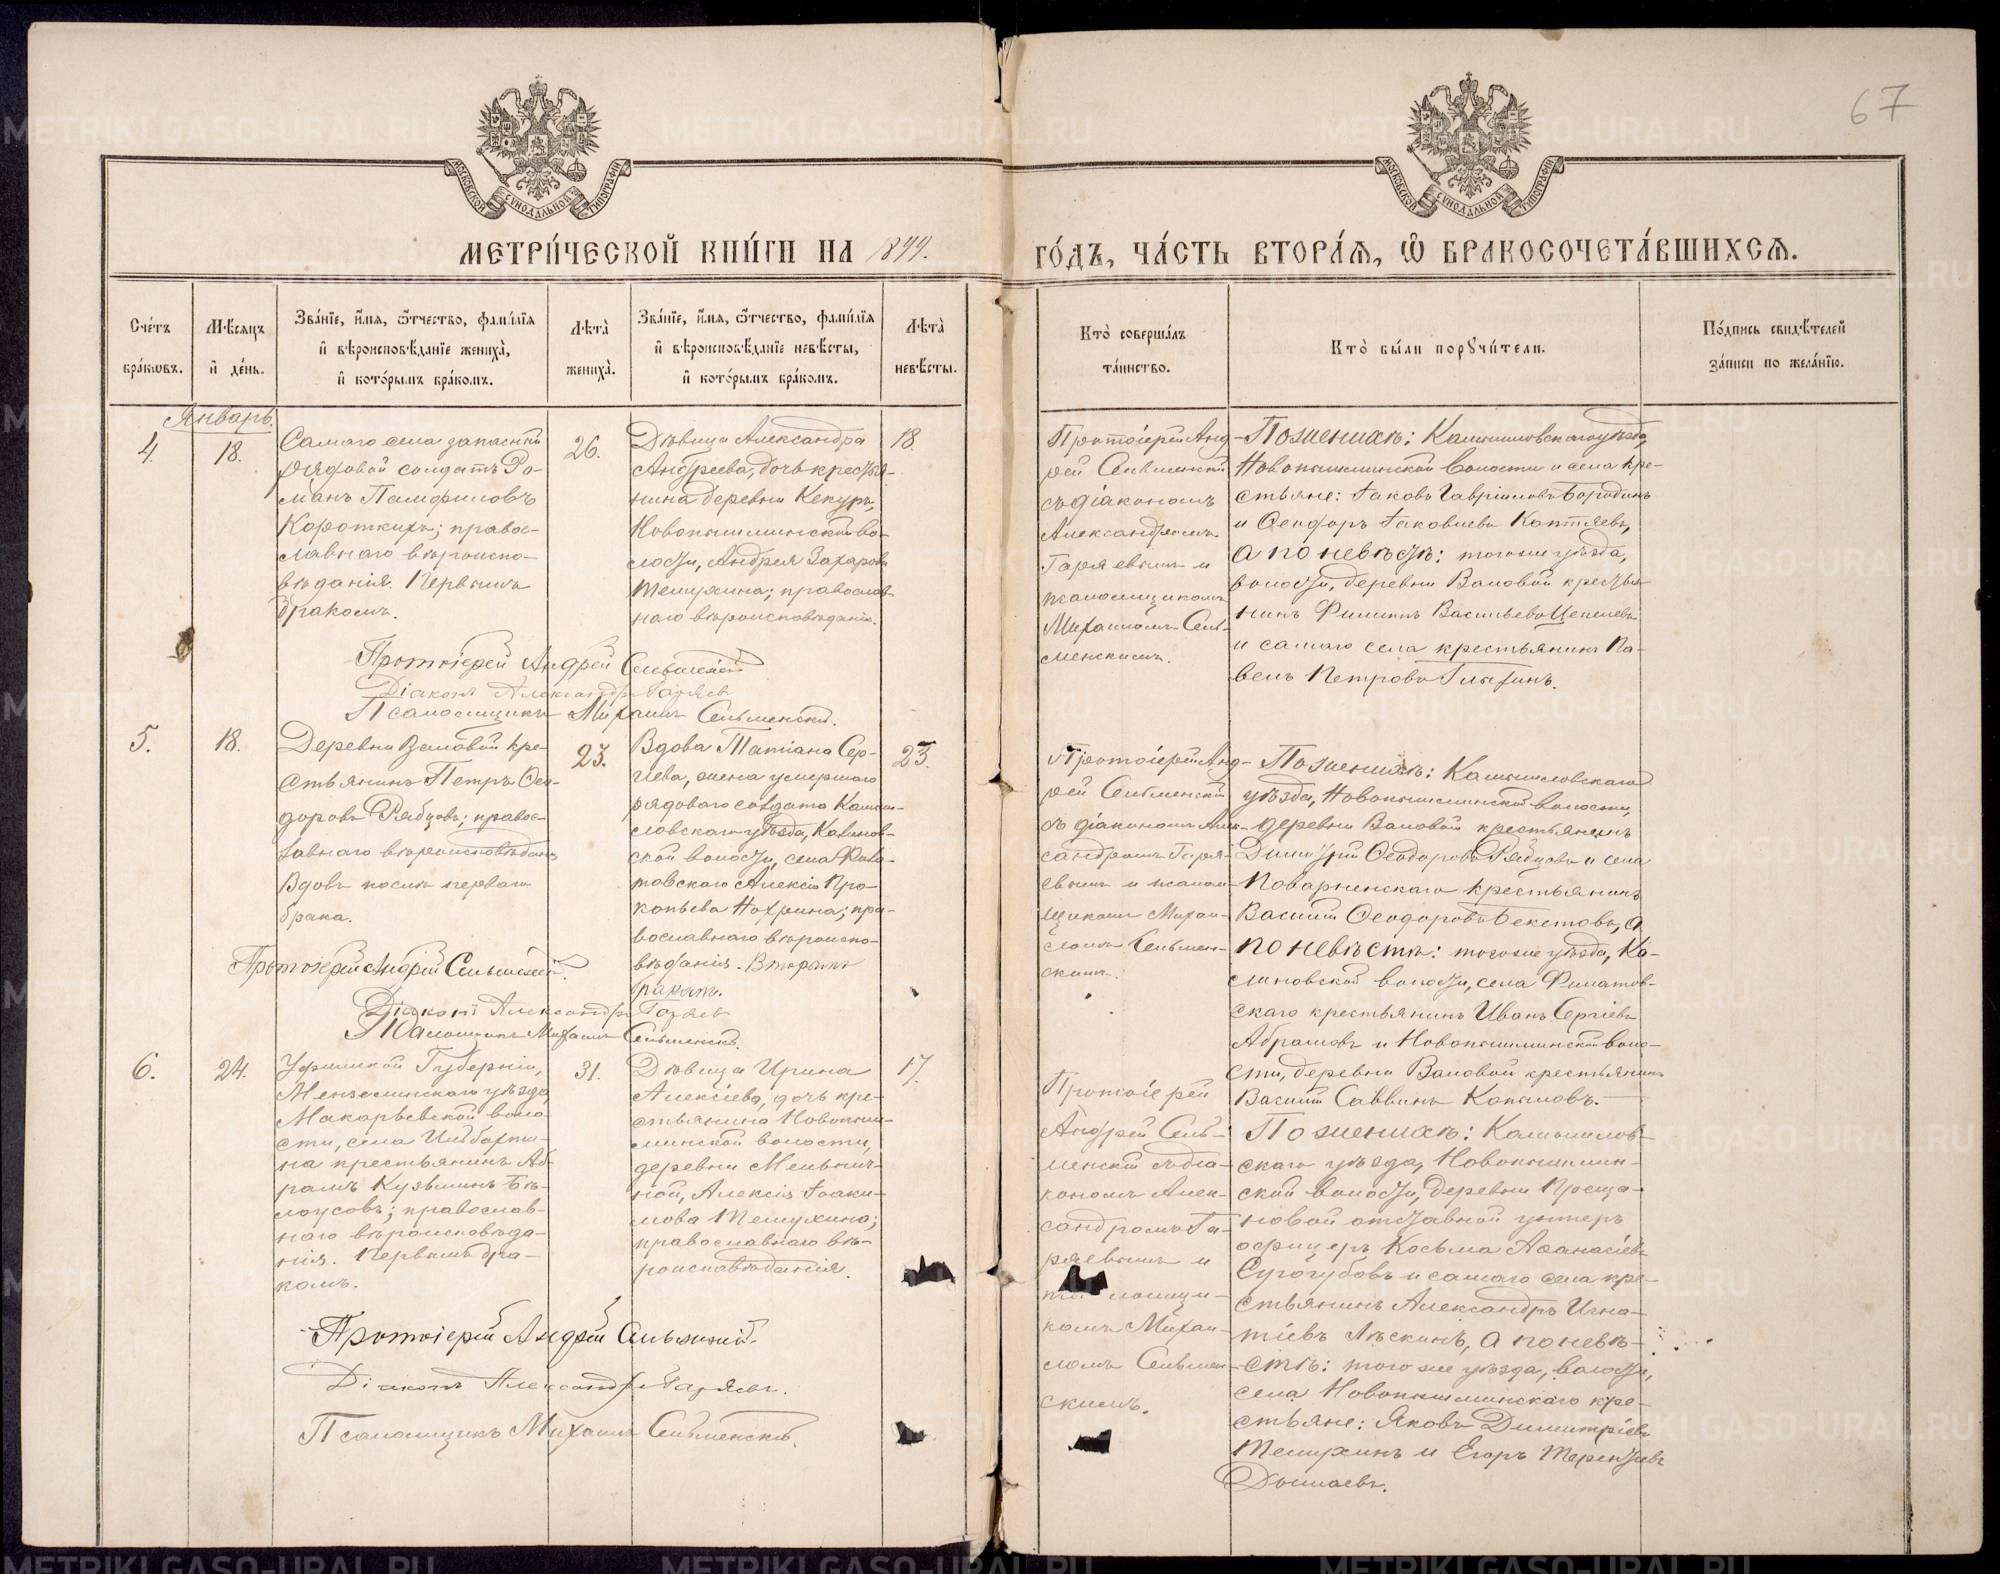 67
МОСКОВСКОЙ СУНОДАЛЬНОЙ ТИПОГРАФІИ
МОСКОВСКОЙ СУНОДАЛЬНОЙ ТИПОГРАФІИ
МЕТРИ́ЧЕСКОЙ КНИ́ГИ НА 1899.
ГО́ДЪ, ЧА́СТЬ ВТОРА́Ѧ, Ѽ БРАКОСОЧЕТА́ВШИХСѦ.
Сче́тъ бра́кѡвъ.
Мѣ́сяцъ и҆ де́нь.
Зва́нїе, и҆́мѧ, ѻ҆́тчество, фами́лїѧ
и҆ вѣроисповѣ́данїе жениха̀,
и҆ кото́рымъ бра́комъ.
Лѣта̀ жениха̀.
Зва́нїе, и҆́мѧ, ѻ҆́тчество, фами́лїѧ
и҆ вѣроисповѣ́данїе невѣ́сты,
и҆ кото́рымъ бра́комъ.
Лѣта̀ невѣ́сты.
Кто̀ соверша́лъ
та́инство.
Кто̀ бы́ли порꙋчи́тели.
По́дпись свидѣ́телей
за́писи по жела́нїю.
Январь.
4.
18.
Самаго села запасный
рядовой солдатъ Ро-
манъ Памфиловъ
Короткихъ; правос-
лавнаго вѣроиспо-
вѣданія. Первымъ
бракомъ.
26.
Дѣвица Александра
Андреева, дочь крестья-
нина деревни Кекуръ,
Новопышминской во-
лости, Андрея Захарова
Темухина; православ-
наго вѣроисповѣданія.
18.
Протоіерей Анд-
рей Сельменскій
съ діакономъ
Александромъ
Гаряевымъ и
псаломщикомъ
Михаиломъ Сель-
менскимъ.
По женихѣ: Камышловскаго уѣзда,
Новопышминской волости и села кре-
стьяне: Іаковъ Гавріиловъ Бородинъ
и Ѳеодоръ Іаковлевъ Коптяевъ,
а по невѣстѣ: тогоже уѣзда,
волости, деревни Валовой крестья-
нинъ Филиппъ Васильевъ Цепелевъ
и самаго села крестьянинъ Па-
велъ Петровъ Глыхинъ.
Протоіерей Андрей Сельменскій
Діаконъ Александръ Гаряевъ
Псаломщикъ Михаилъ Сельменскій.
5.
18.
Деревни Валовой кре-
стьянинъ Петръ Ѳео-
доровъ Рябцовъ; правос-
лавнаго вѣроисповѣданія
Вдовъ послѣ перваго
брака.
23.
Вдова Татіана Сер-
гіева, жена умершаго
рядоваго солдата Камыш-
ловскаго уѣзда, Калинов-
ской волости, села Фила-
товскаго Алексія Про-
копьева Нохрина; пра-
вославнаго вѣроиспо-
вѣданія. Вторымъ
бракомъ.
23.
Протоіерей Анд-
рей Сельменскій
съ діакономъ Алек-
сандромъ Гаря-
евымъ и псалом-
щикомъ Михаи-
ломъ Сельмен-
скимъ.
По женихѣ: Камышловскаго
уѣзда, Новопышминской волости,
деревни Валовой крестьянинъ
Димитрій Ѳеодоровъ Рябцовъ и села
Поварненскаго крестьянинъ
Василій Ѳеодоровъ Бекетовъ, а
по невѣстѣ: тогоже уѣзда, Ка-
линовской волости, села Филатов-
скаго крестьянинъ Иванъ Сергіевъ
Абрамовъ и Новопышминской воло-
сти, деревни Валовой крестьянинъ
Василій Саввинъ Копыловъ.
Протоіерей Андрей Сельменскій
Діаконъ Александръ Гаряевъ
Псаломщикъ Михаилъ Сельменскій.
6.
24.
Уфимской Губерніи,
Мензелинскаго уѣзда,
Макарьевской воло-
сти, села Ильбахти-
на крестьянинъ Аб-
рамъ Кузьминъ Бѣ-
лоусовъ; православ-
наго вѣроисповѣда-
нія. Первымъ бра-
комъ.
31.
Дѣвица Ирина
Алексіева, дочь кре-
стьянина Новопыш-
минской волости,
деревни Мельнич-
ной, Алексія Іоаки-
мова Темухина;
православнаго вѣ-
роисповѣданія.
17.
Протоіерей
Андрей Сель-
менскій съ діа-
кономъ Алек-
сандромъ Га-
ряевымъ и
комъ Михаи-
ломъ Сельмен-
скимъ.
По женихѣ: Камышлов-
скаго уѣзда, Новопышмин-
ской волости, деревни Проща-
новой отставной унтеръ
офицеръ Косьма Аѳанасіевъ
Сугогубовъ и самаго села кре-
стьянинъ Александръ Игна-
тіевъ Лѣскинъ, а по невѣ-
стѣ: того же уѣзда, волости,
села Новопышминскаго кре-
стьяне: Яковъ Димитріевъ
Темухинъ и Егоръ Терентьевъ
Протоіерей Андрей Сельменскій.
Діаконъ Александръ Гаряевъ.
Псаломщикъ Михаилъ Сельменскій.
METRIKI.GASO-URAL.RU